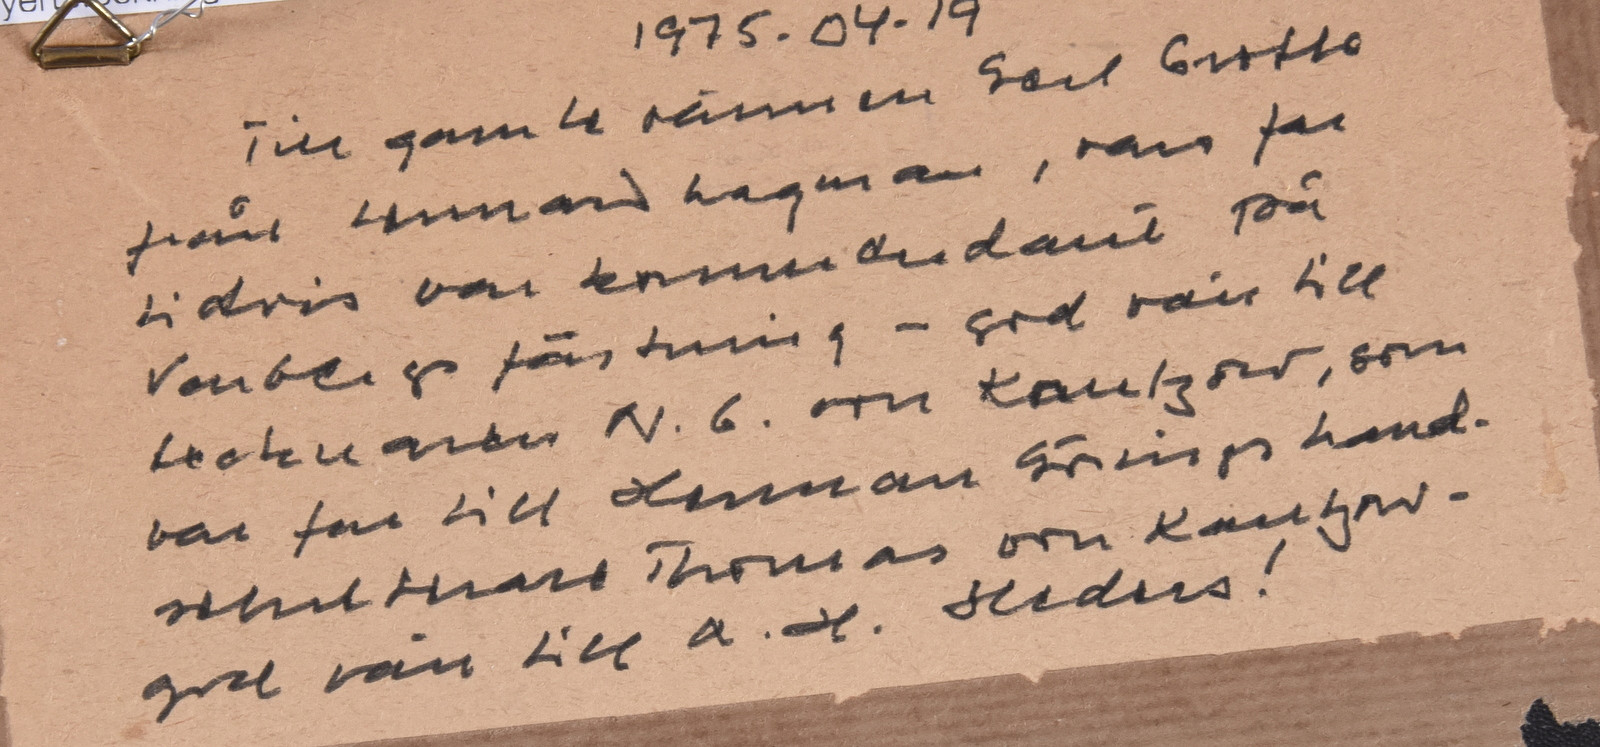 1975-04-19
Till gamle vännen Carl Grotte
från Lennard Lagman, vars far
tidvis var kommendant på
Varbergs fästning - god vän till
tecknaren N. G. von Kantzow, som
var far till Herman Görings hand-
sekreterare Thomas von Kantzow -
god vän till A. H. Heders!